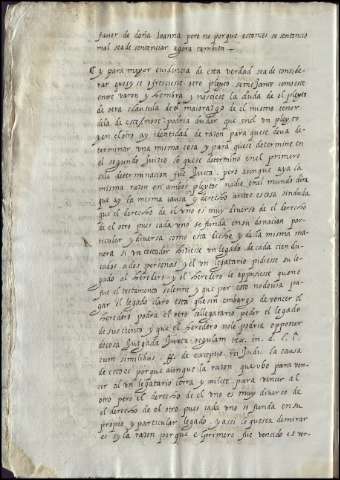 fauor de doña Joanna pero no porque estonces se sentencio
mal se a de sentenciar agora tambien
Y para mayor euidencia de esta verdad se a de conside
rar que si se ofreciesse otro pleyto semejante como este
entre varon y hembra y naciesse la duda de el pleyto
de otra clausula de el mayorazgo de el mismo tenor
de la de este se podria dudar que en el un pleyto
y en el otro ay identidad de razon para que se deua de
terminar una misma cosa y para que se determine en
el segundo Juizio lo que se determino en el primero
si la determinacion fue Justa. pero aunque aya la
misma razon en ambos pleytos nadie en el mundo dira
que ay la misma causa y derecho antes es cosa sin duda
que el derecho de el vno es muy diuerso de el derecho
de el otro pues cada vno se funda en su donacion par
ticular y diuersa como esta dicho y de la misma ma
nera si un testador hiziesse un legado de cada cien du
cados a dos personas y el un legatario pidiesse su le
gado al heredero y el heredero le oppusiesse que no
fue el testamento solenne y que por esto no deuia pa
gar el legado claro esta que sin embargo de vencer el
heredoro podra el otro collegatario pedir el legado
de sus ciento y que el heredero no le podria opponer
de cosa Juzgada
tum similibus. ff. de exceptio. rei Judi. la causa
de esto es porque aunque la razon que vbo para ven
cer al un legatario corra y milite para vencer al
otro pero el derecho de el vno es muy diuerso de
el derecho de el otro pues cada vno se funda en su
proprio y particular legado y assi lo que se a de mirar
es si la razon porque el primero fue vencido es ver